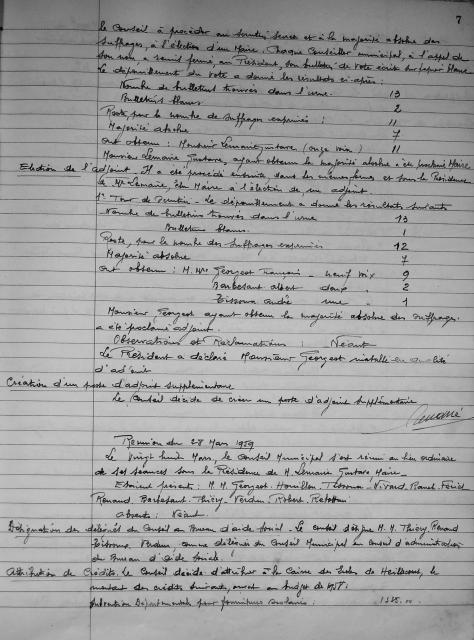 7
le Conseil à procéder au scrutin secret et à la majorité absolue des
suffrages, à l'élection d'un Maire. Chaque Conseiller municipal, à l'appel de
son nom a remis fermé, au Président, son bulletin de vote écrit sur papier blanc
Le dépouillement du vote a donné les résultats ci-après :
Nombre de bulletins trouvés dans l'urne 13
Bulletins blancs 2
Reste, pour le nombre de suffrages exprimés : 11
Majorité absolue 7
Ont obtenu : Monsieur Lemaire Gustave (onze voix) 11
Monsieur Lemaire Gustave, ayant obtenu la majorité absolue a été proclamé Maire
Election de l'adjoint. Il a été procédé ensuite, dans les mêmes formes et sous la Présidence
de Mr Lemaire, élu Maire à l'élection de un adjoint.
1er Tour de Scrutin - Le dépouillement a donné les résultats suivants
Nombre de bulletins trouvés dans l'urne 13
Bulletins blancs 1
Reste, pour le nombre des suffrages exprimés 12
Majorité absolue 7
Ont obtenu : M. Mrs Georgest François - neuf voix 9
Barbesant Albert deux " 2
André une " 1
Monsieur Georgest ayant obtenu la majorité absolue des suffrages
a été proclamé adjoint.
Observations et Réclamations : Néant
Le Président a déclaré Monsieur Georgest installé en qualité
d'adjoint
Création d'un poste d'adjoint supplémentaire
Le Conseil décide de créer un poste d'adjoint supplémentaire
Réunion du 28 Mars 1959
Le Vingt huit Mars, le Conseil Municipal s'est réuni au lieu ordinaire
de ses séances sous la Présidence de M. Lemaire Gustave Maire.
Etaient présents : M.M. Georgest
Renaud. Barbesant. Thiéry. Verdun. Robert.
Absents : Néant.
Désignation des délégués du Conseil au Bureau d'aide sociale - Le conseil désigne M.M. Thiéry, Renaud
Verdun, comme délégués du Conseil Municipal au Conseil d'administration
du Bureau d'Aide Sociale.
Attribution de Crédits. Le Conseil décide d'attribuer à la Caisse des Ecoles de Heillecourt, le
montant des crédits suivants, au budget de
Subvention Départementale pour fournitures scolaires :